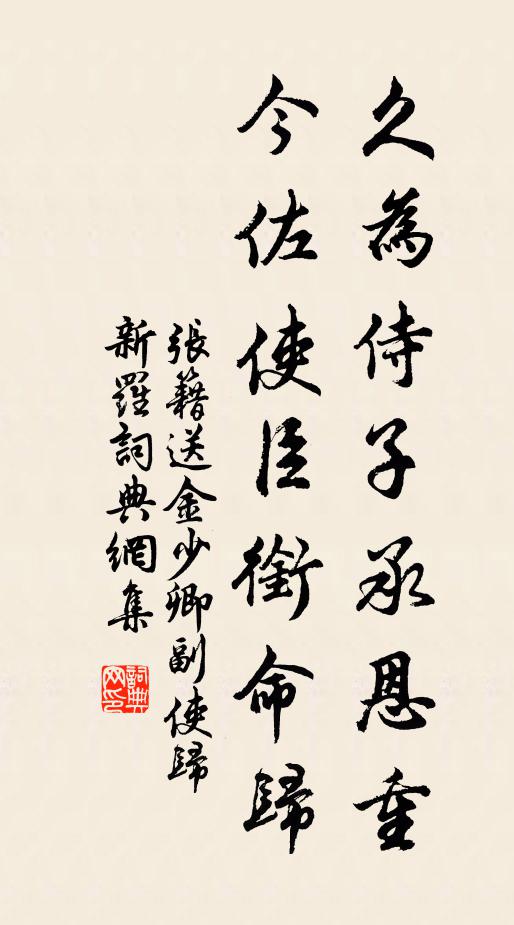 久為侍子承恩重
今佐使臣銜命歸
張籍送金少卿副使歸
新羅詞典網集
詞典
网印